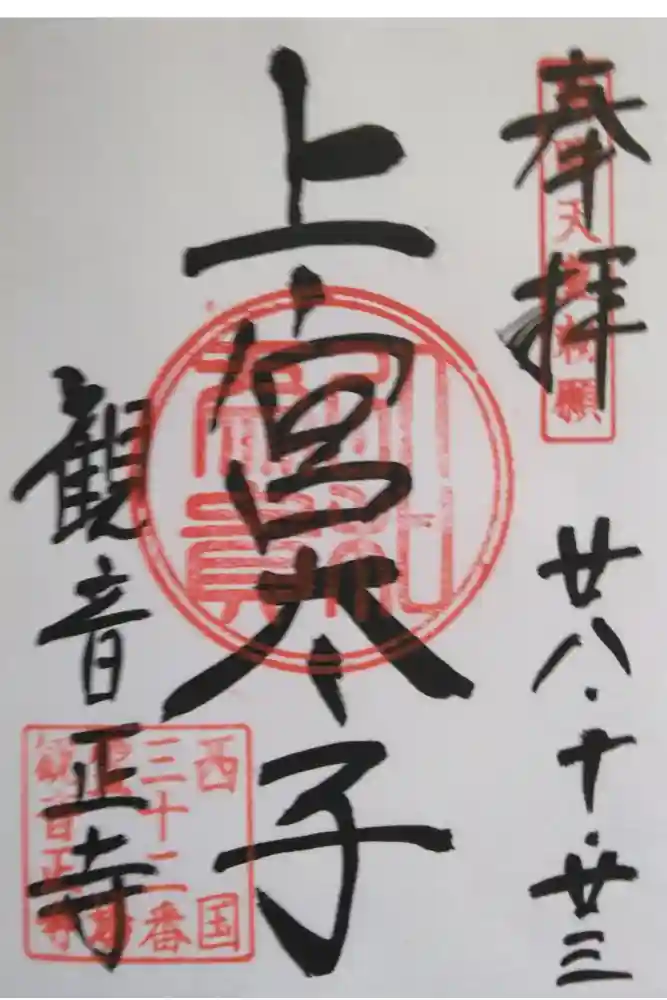 奉拝
廿八・十・廿三
上宮太子
観音正寺
西国
三十二番
観音正寺